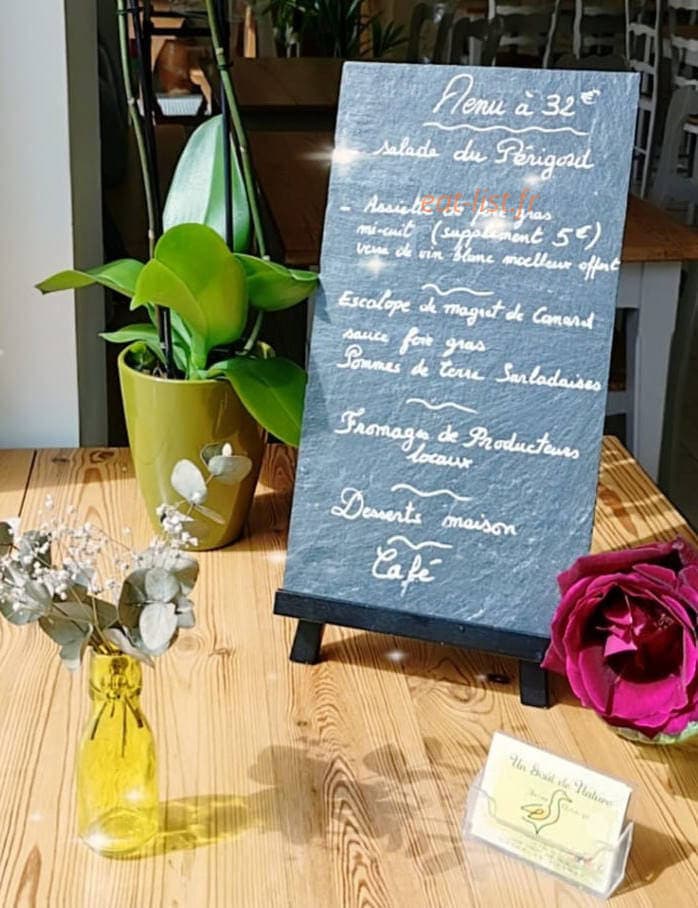 Menu à 32€
- salade du Périgord
eat-list.fr
- Assiette de foie gras
mi-cuit (supplément 5€)
verre de vin blanc moelleux offert
Escalope de magret de Canard
sauce foie gras
Pommes de terre Sarladaises
Fromages de Producteurs
locaux
Desserts maison
Café
Un Goût de Nature